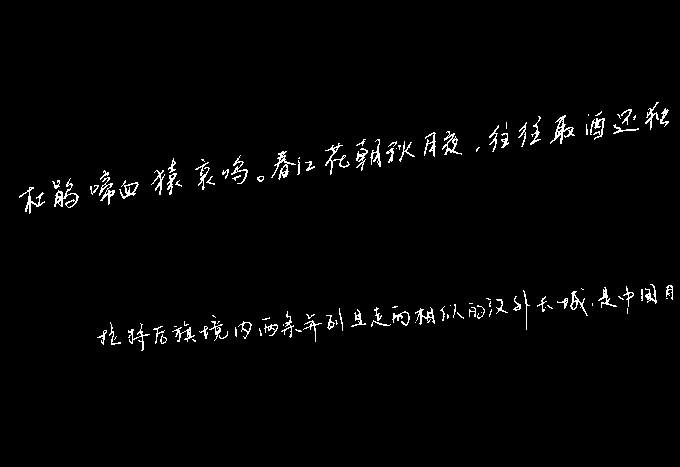 杜鹃啼血猿哀鸣。春江花朝秋月夜，往往取酒还独
拉特后旗境内两条并列且走向相似的汉外长城，是中国目